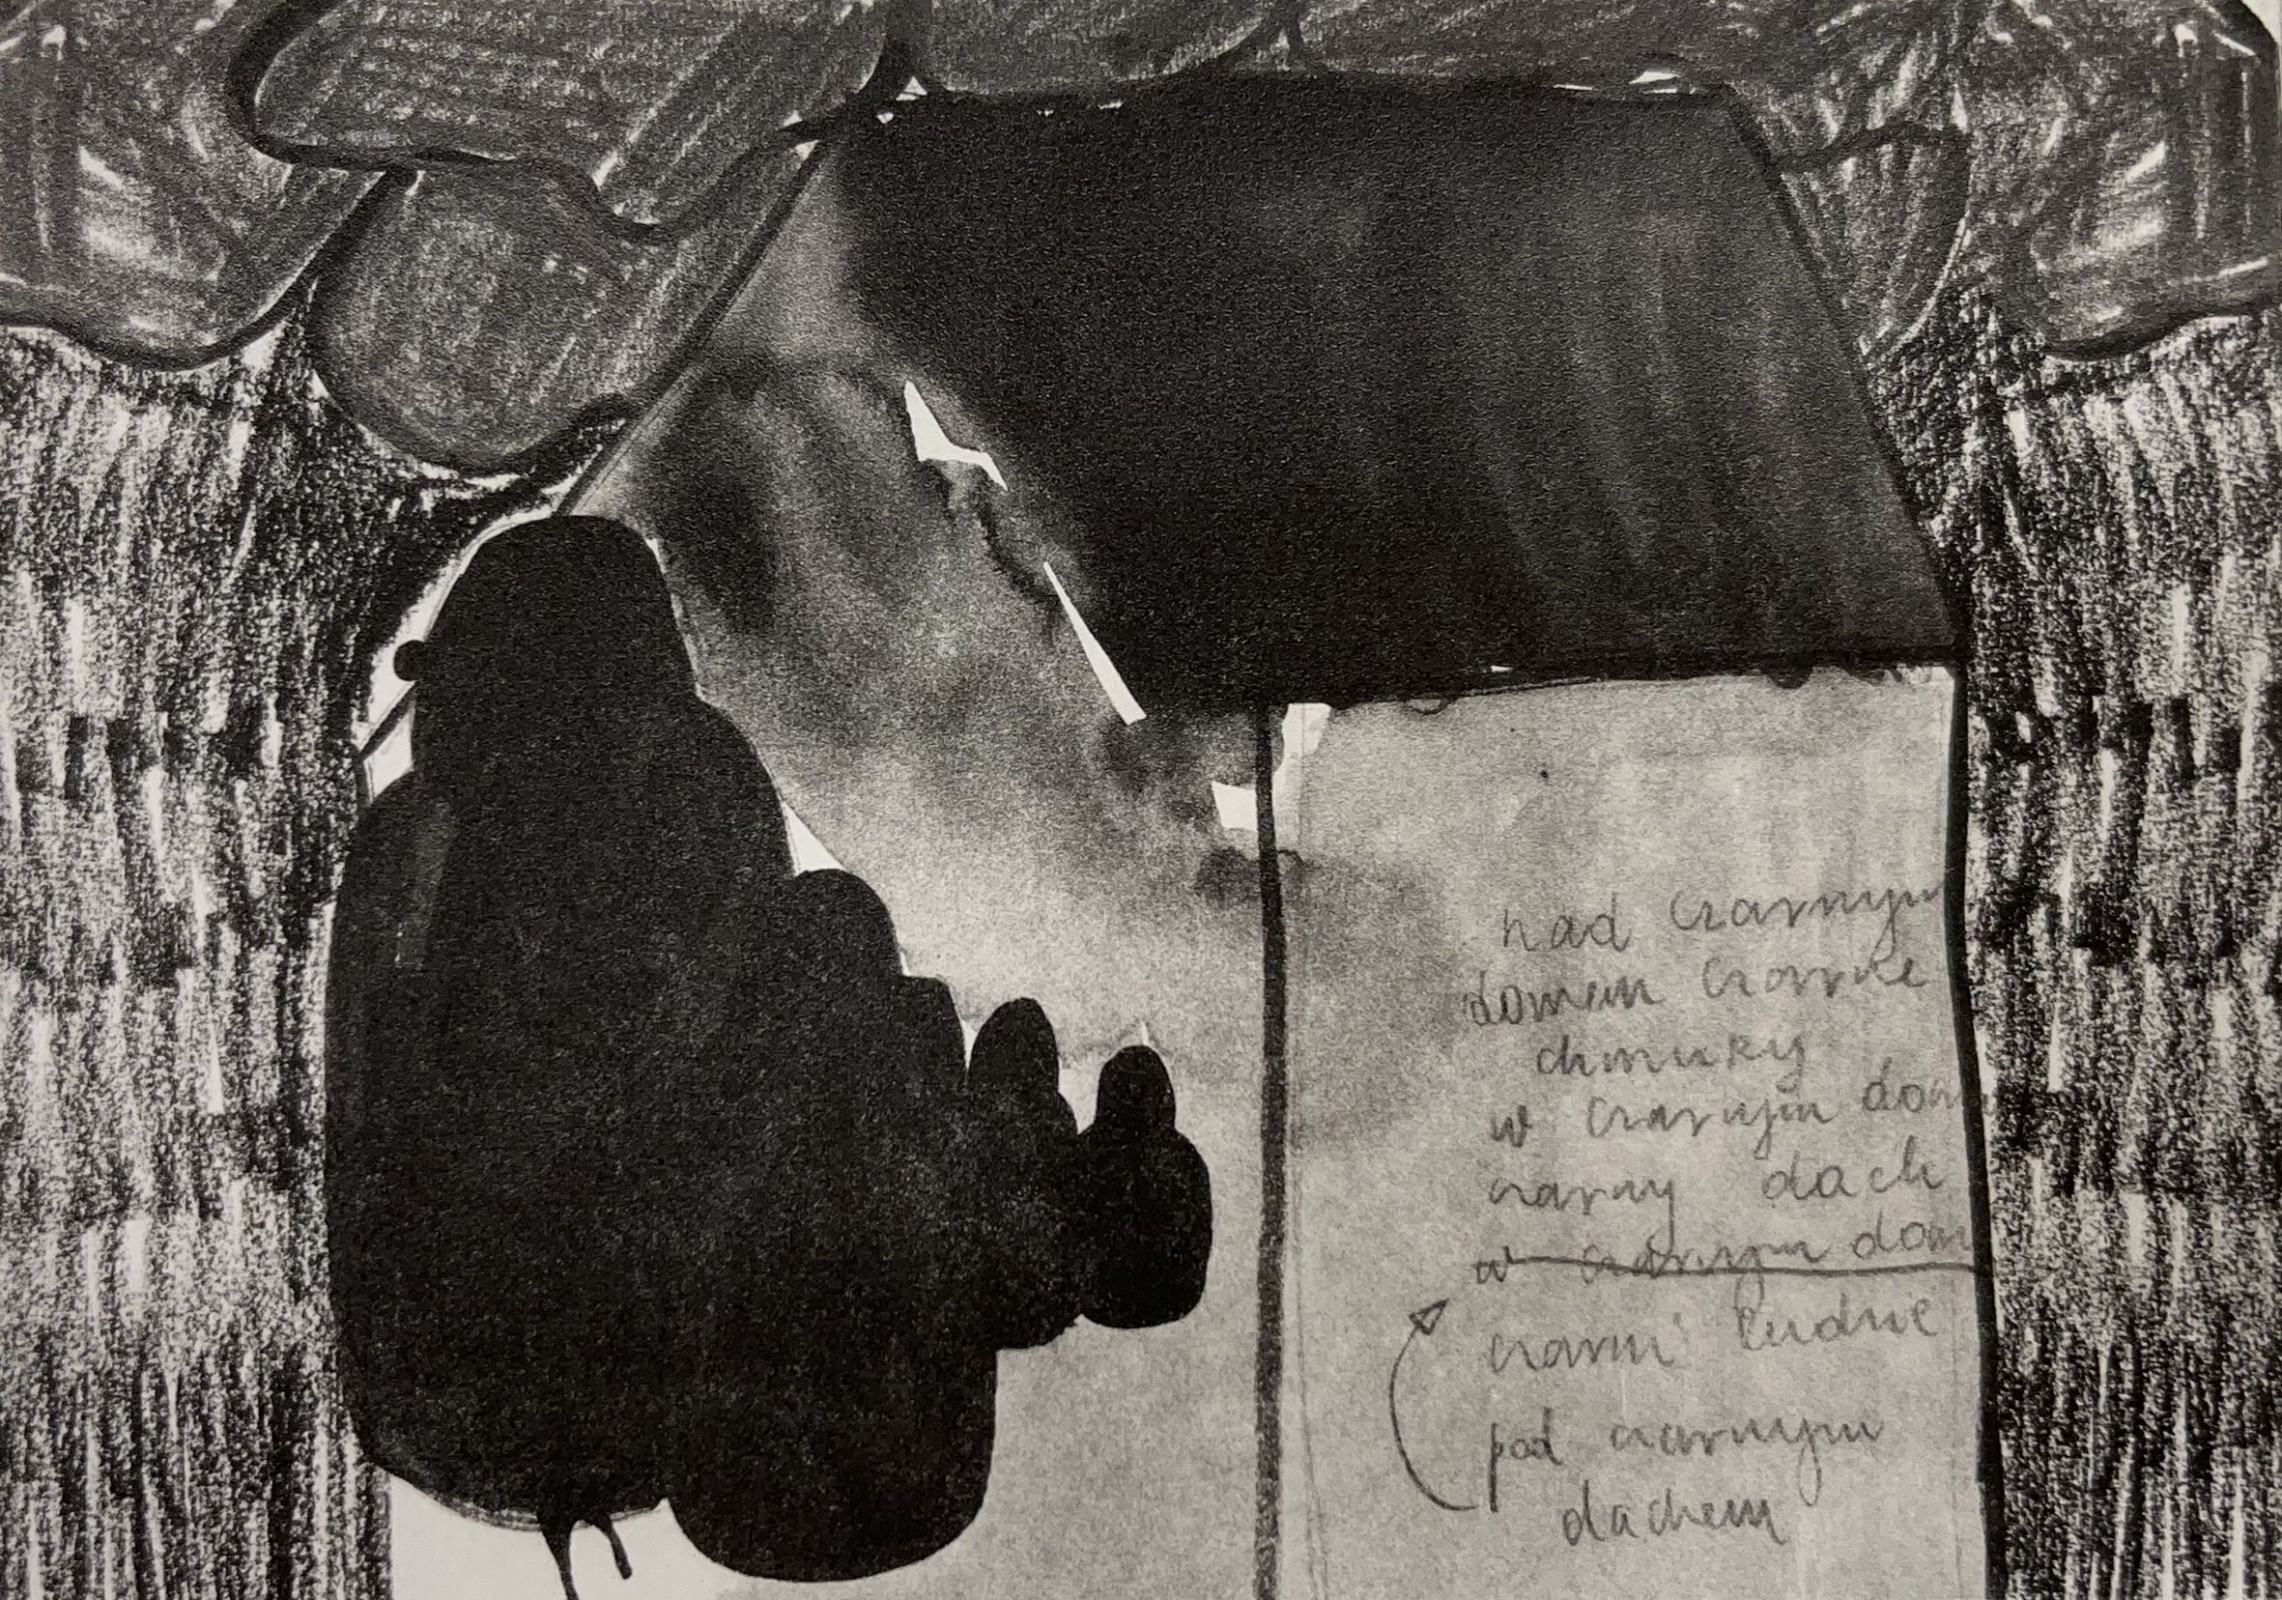 nad czarnym
domem czarne
chmury
w czarnym dom
czarny dach
w czarnym dom
czarni ludzie
pod czarnym
dachem